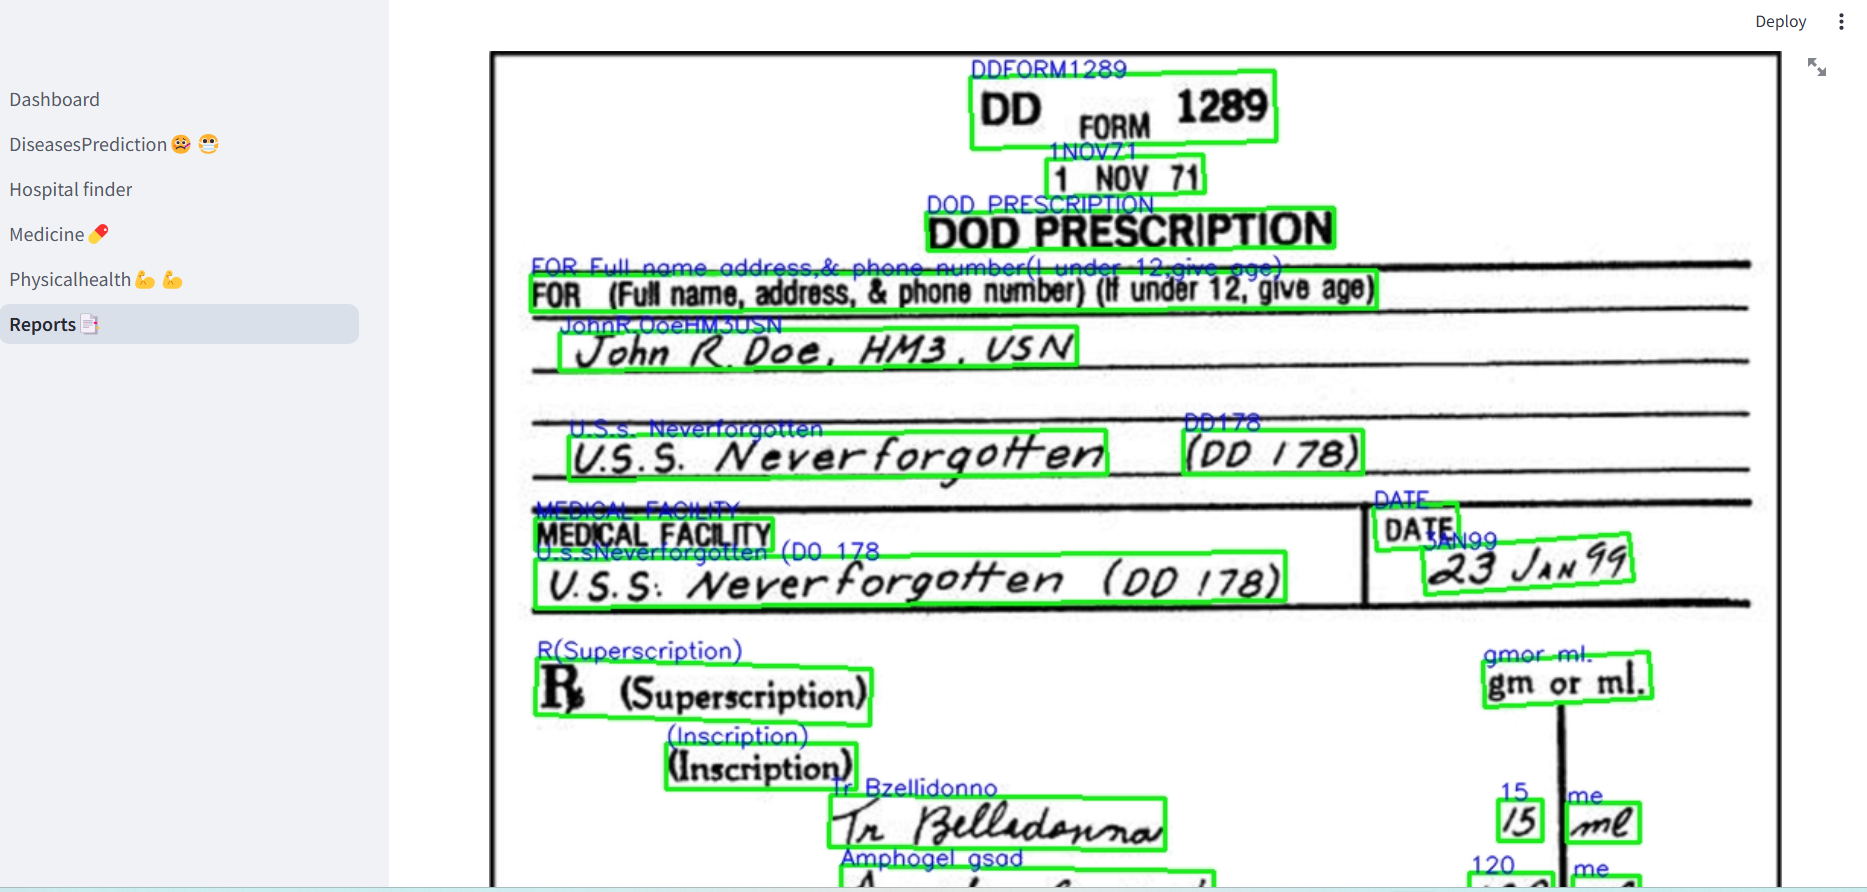 Deploy
Dashboard
DiseasesPrediction🤒 😷
Hospital finder
Medicine💊
Physicalhealth💪 💪
Reports📑
DDFORM1289
DD FORM 1289
1NOV71
1 NOV 71
DOD PRESCRIPTION
DOD PRESCRIPTION
FOR Full name address,& phone number(I under 12,give age)
FOR (Full name, address, & phone number) (If under 12, give age)
JohnR.DoeHM3USN
John R. Doe, HM3, USN
U.S.s. Neverforgotten DD178
U.S.S. Neverforgotten (DD 178)
MEDICAL FACILITY DATE
MEDICAL FACILITY DATE
U.s.sNeverforgotten (DO 178 JAN99
U.S.S. Neverforgotten (DD 178) 23 JAN 99
R(Superscription) gmor ml.
℞ (Superscription) gm or ml.
(Inscription)
(Inscription)
Tr Bzellidonno 15 me
Tr Belladonna 15 ml
Amphogel gsad 120 me